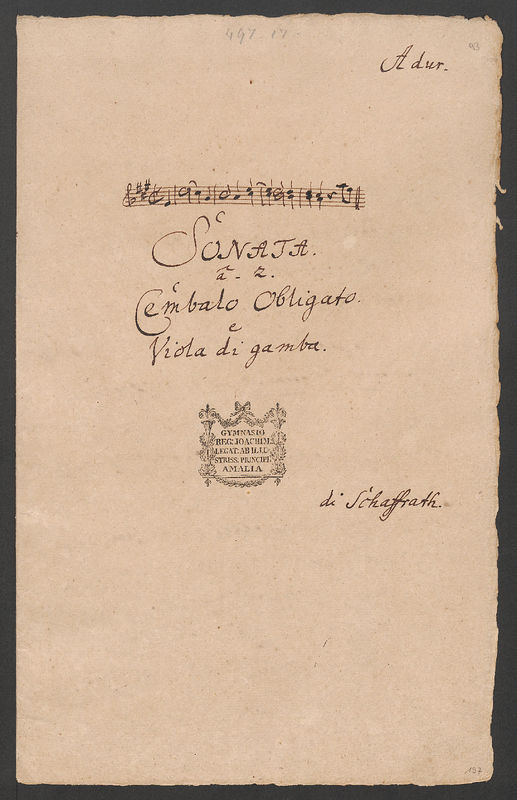 497 17
93
A dur.
SONATA.
â - 2.
Cembalo Obligato.
e
Viola di gamba.
GYMNASIO
REG: JOACHIM:
LEGAT: AB ILLU-
STRISS. PRINCIPI.
AMALIA
di Schaffrath.
197